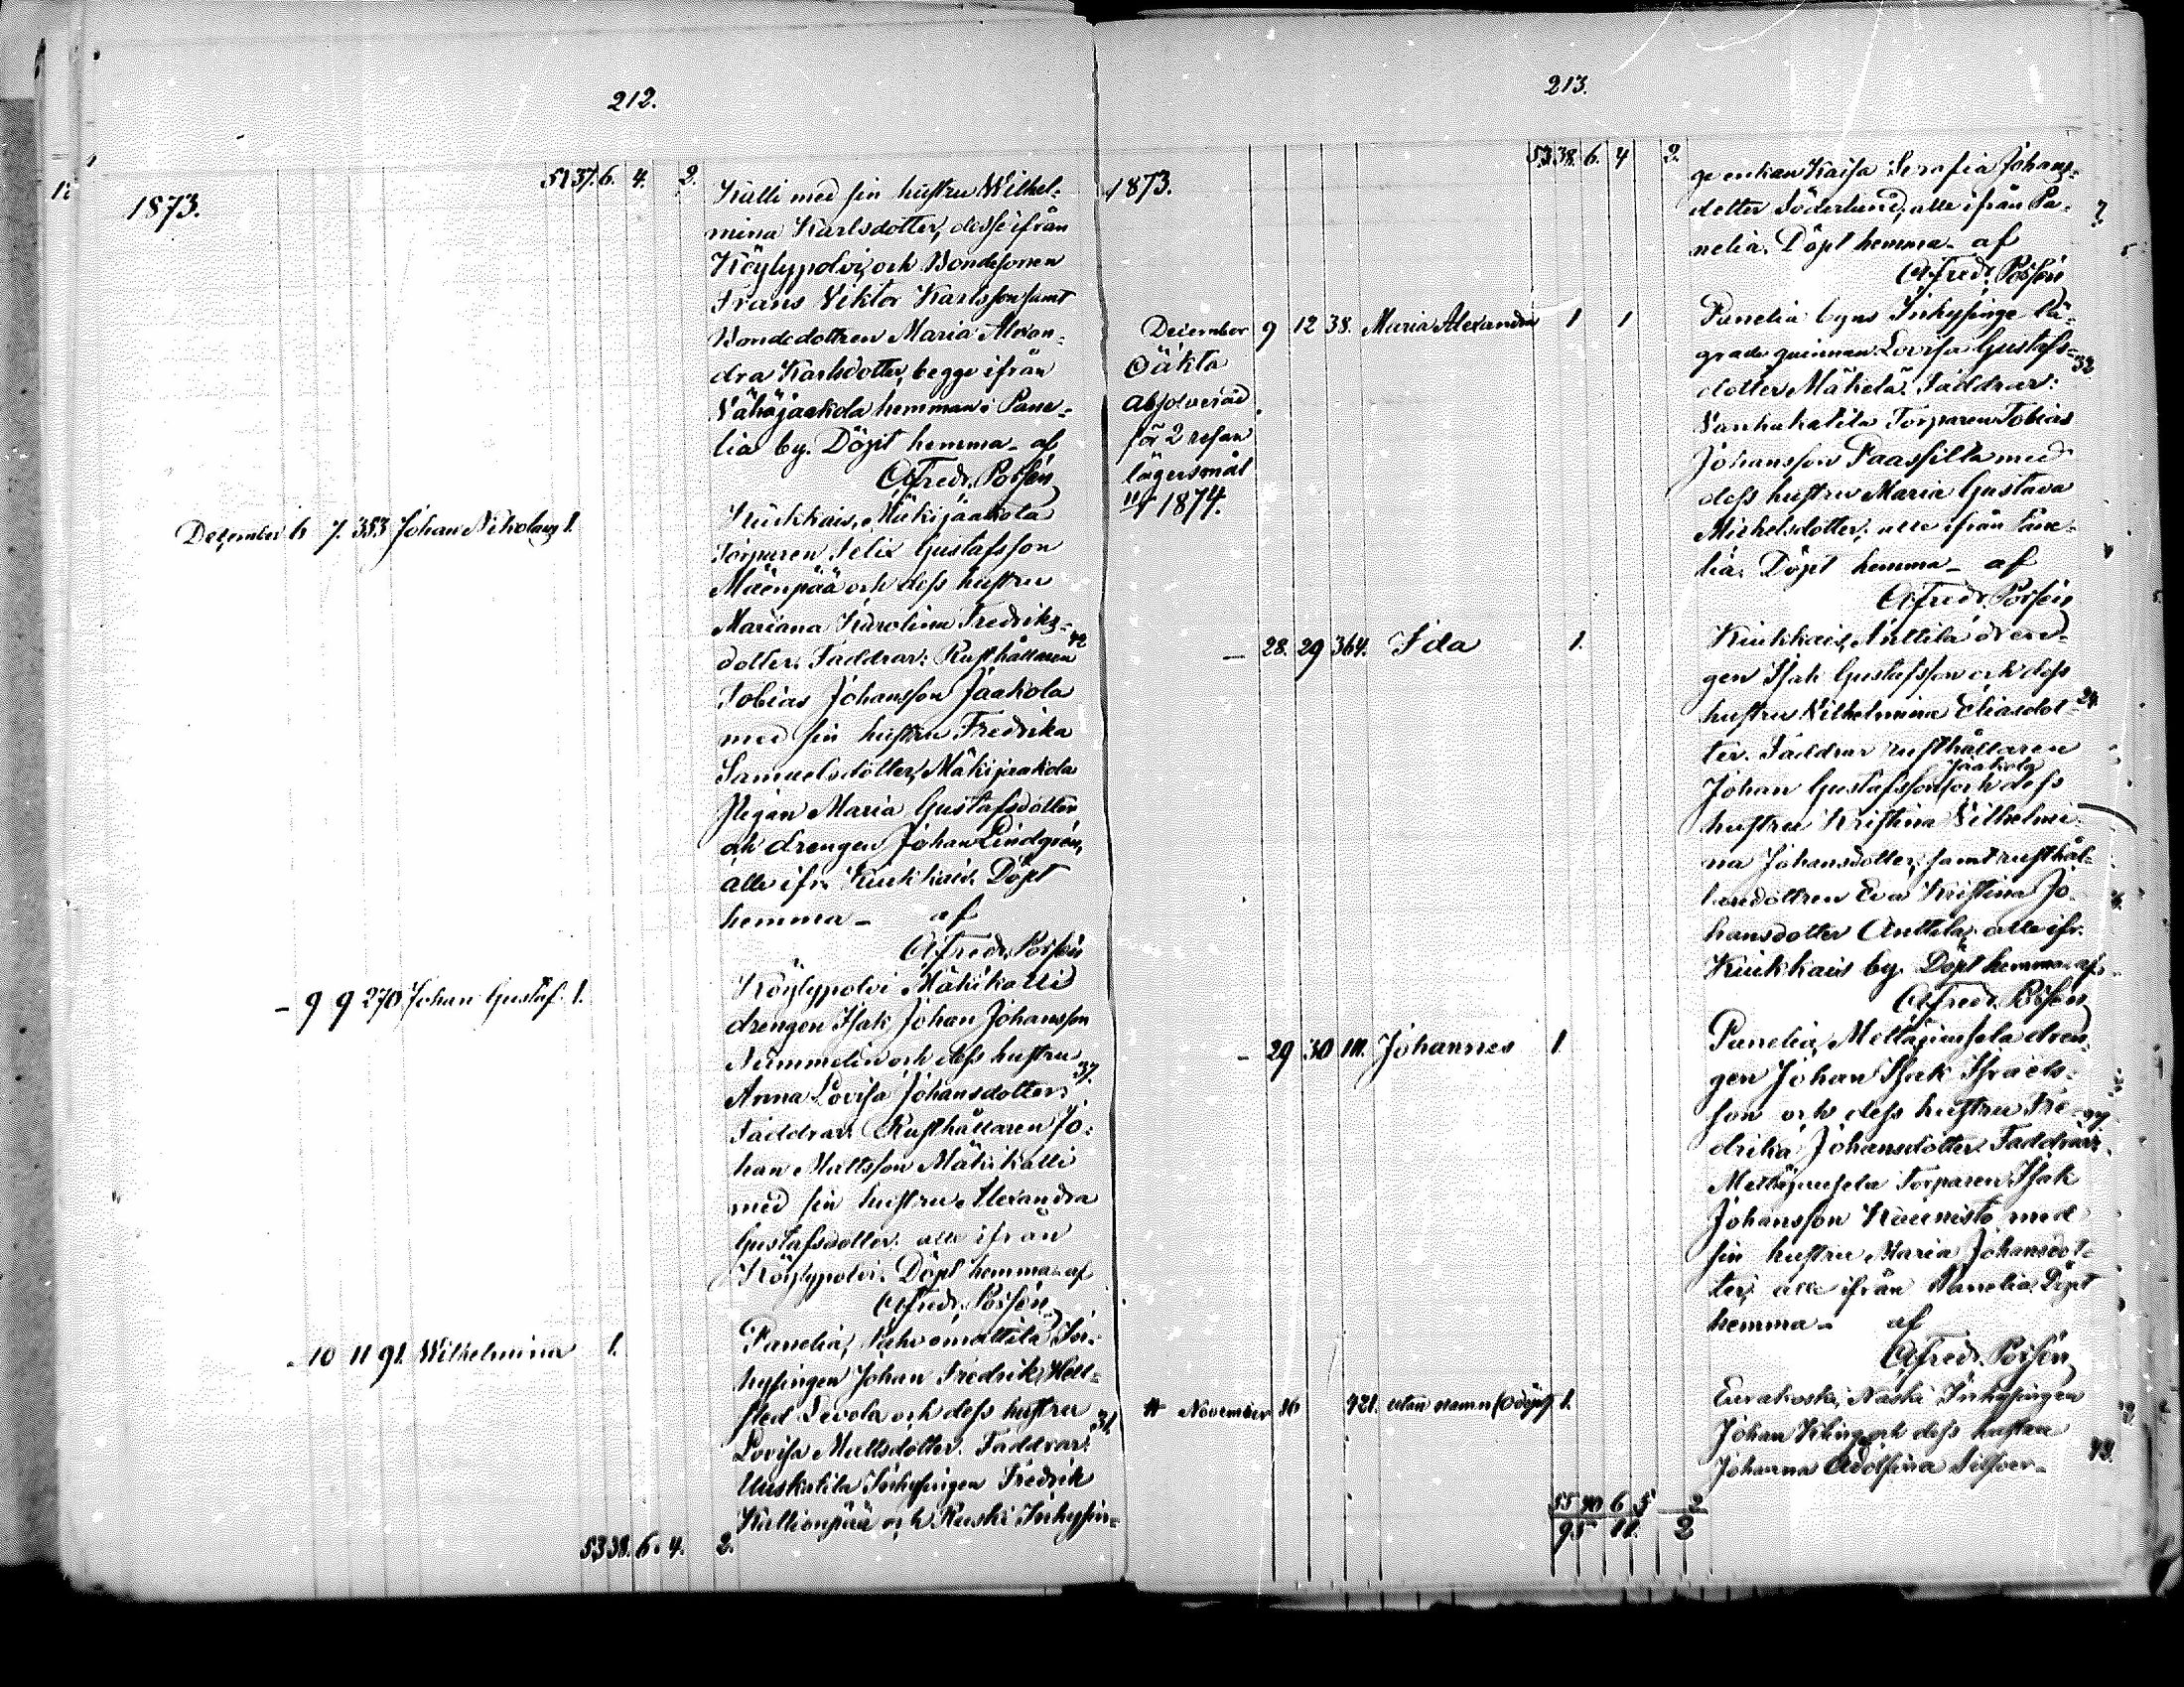 212.
51 37. 6. 4. 2.
1873.
Kalli med sin hustru Wilhel-
mina Karlsdotter, desse ifrån
Köylypolvi, och Bondesonen
Frans Viktor Karlsson samt
Bondedottren Maria Alexan-
dra Karlsdotter, begge ifrån
Vähäjaakola hemman i Pane-
lia by. Döpt hemma - af
Alfred. Possén
December 6 7. 353 Johan Nikolaus 1.
Kiukkais, Mäkijaakola
Torparen Felix Gustafsson
Mäenpää och dess hustru
Mariana Karolina Fredriks-
dotter. Faddrar: Rusthållaren 42
Tobias Johansson Jaakola
med sin hustru Fredrika
Samuelsdotter, Mäkijaakola
Pigan Maria Gustafsdotter
och drengen Johan Lindgrén,
alle ifr. Kiukkais. Döpt
hemma - af
Alfred. Possén
- 9 9 270 Johan Gustaf. 1.
Köylypolvi Mäkikalli
drengen Isak Johan Johansson
Nummelin och dess hustru
Anna Lovisa Johansdotter. 37.
Faddrar: Rusthållaren Jo-
han Mattsson Mäkikalli
med sin hustru Alexandra
Gustafsdotter. alle ifrån
Köylypolvi. Döpt hemma - af
Alfred. Possén
- 10 11 91. Wilhelmina 1.
Panelia,
hysingen Johan Fredrik Hell-
sted Sevola och dess hustru
Lovisa Mattsdotter. Faddrar: 31.
Uuskatila Inhysingen Fredrik
Kallionpää och Ruski Inhysin-
53 38. 6. 4. 2.
213.
53 38. 6. 4 2.
1873.
ge enkan Kaisa Serafia Johans-
dotter Söderlund, alle ifrån Pa-
nelia. Döpt hemma - af
Alfred. Possén
December 9 12 38. Maria Alexandra 1 1
Oäkta
Absolverad
för 2 resan
lägersmål
1874.
Panelia byns Inhysinge lä-
grade quinnan Lovisa Gustafs- 32
dotter Mäkelä. Faddrar:
Vanhakatila Torparen Tobias
Johansson Paassilta med
dess hustru Maria Gustava
Michelsdotter; alle ifrån Pane-
lia. Döpt hemma - af
Alfred. Possén
- 28. 29 364. Ida 1.
Kiukkais, Anttila dren-
gen Isak Gustafsson och dess
hustru Wilhelmina Eliasdot- 24
ter. Faddrar rusthållaren
Johan Gustafsson Jaakola och dess
hustru Kristina Wilhelmi-
na Johansdotter, samt rusthål-
laredottren Eva Kristina Jo-
hansdotter Anttila, alle ifr.
Kiukkais by. Döpt hemma af
Alfred. Possén
- 29 30 111. Johannes 1.
Panelia, dren-
gen Johan Isak Israels-
son och dess hustru Fre-
drika Johansdotter. Faddrar:
Torparen Isak
Johansson Kaunisto med
sin hustru Maria Johansdot-
ter, alle ifrån Panelia. Döpt
hemma - af
Alfred. Possén
# November 16 421. utan namn (Odöpt). 1.
Eurakoski, Naski Inhysingen
Johan Kling och dess hustru
Johanna Adolfina Silfver- 43.
55 40 6 5 2
95 11. 2